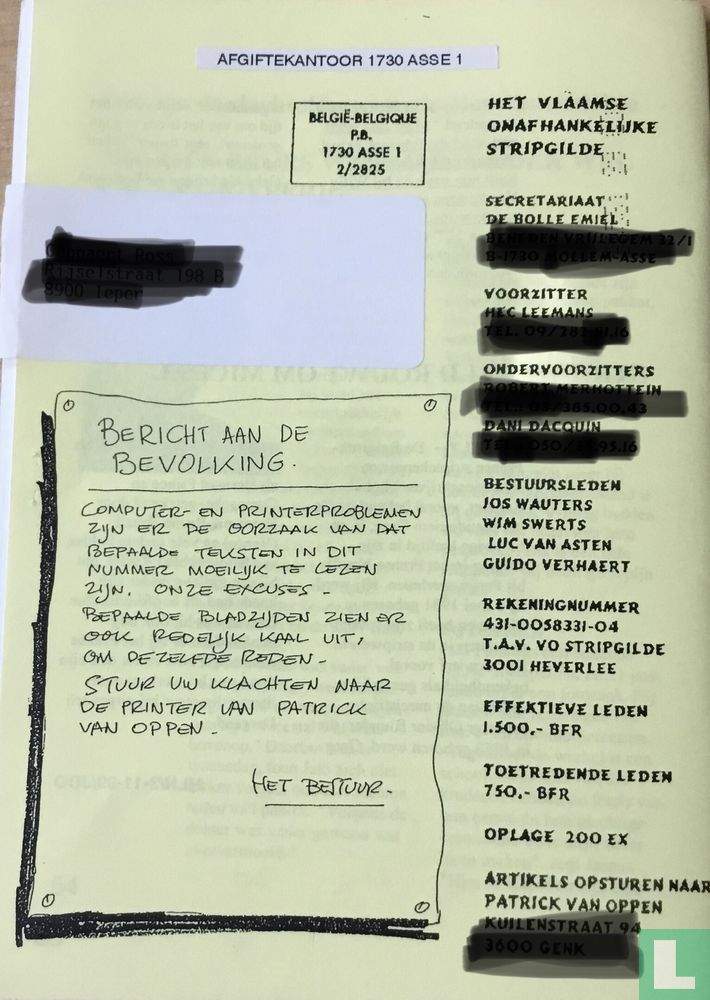 AFGIFTEKANTOOR 1730 ASSE 1
BELGIË-BELGIQUE
P.B.
1730 ASSE 1
2/2825
HET VLAAMSE
ONAFHANKELIJKE
STRIPGILDE
SECRETARIAAT
DE BOLLE EMIEL
VOORZITTER
HEC LEEMANS
ONDERVOORZITTERS
DANI DACQUIN
BESTUURSLEDEN
JOS WAUTERS
WIM SWERTS
LUC VAN ASTEN
GUIDO VERHAERT
REKENINGNUMMER
431-0058331-04
T.A.V. VO STRIPGILDE
3001 HEVERLEE
EFFEKTIEVE LEDEN
1.500,- BFR
TOETREDENDE LEDEN
750,- BFR
OPLAGE 200 EX
ARTIKELS OPSTUREN NAAR
PATRICK VAN OPPEN
BERICHT AAN DE
BEVOLKING.
COMPUTER- EN PRINTERPROBLEMEN
ZIJN ER DE OORZAAK VAN DAT
BEPAALDE TEKSTEN IN DIT
NUMMER MOEILIJK TE LEZEN
ZIJN. ONZE EXCUSES -
BEPAALDE BLADZIJDEN ZIEN ER
OOK REDELIJK KAAL UIT,
OM DEZELFDE REDEN -
STUUR UW KLACHTEN NAAR
DE PRINTER VAN PATRICK
VAN OPPEN -
HET BESTUUR -
L